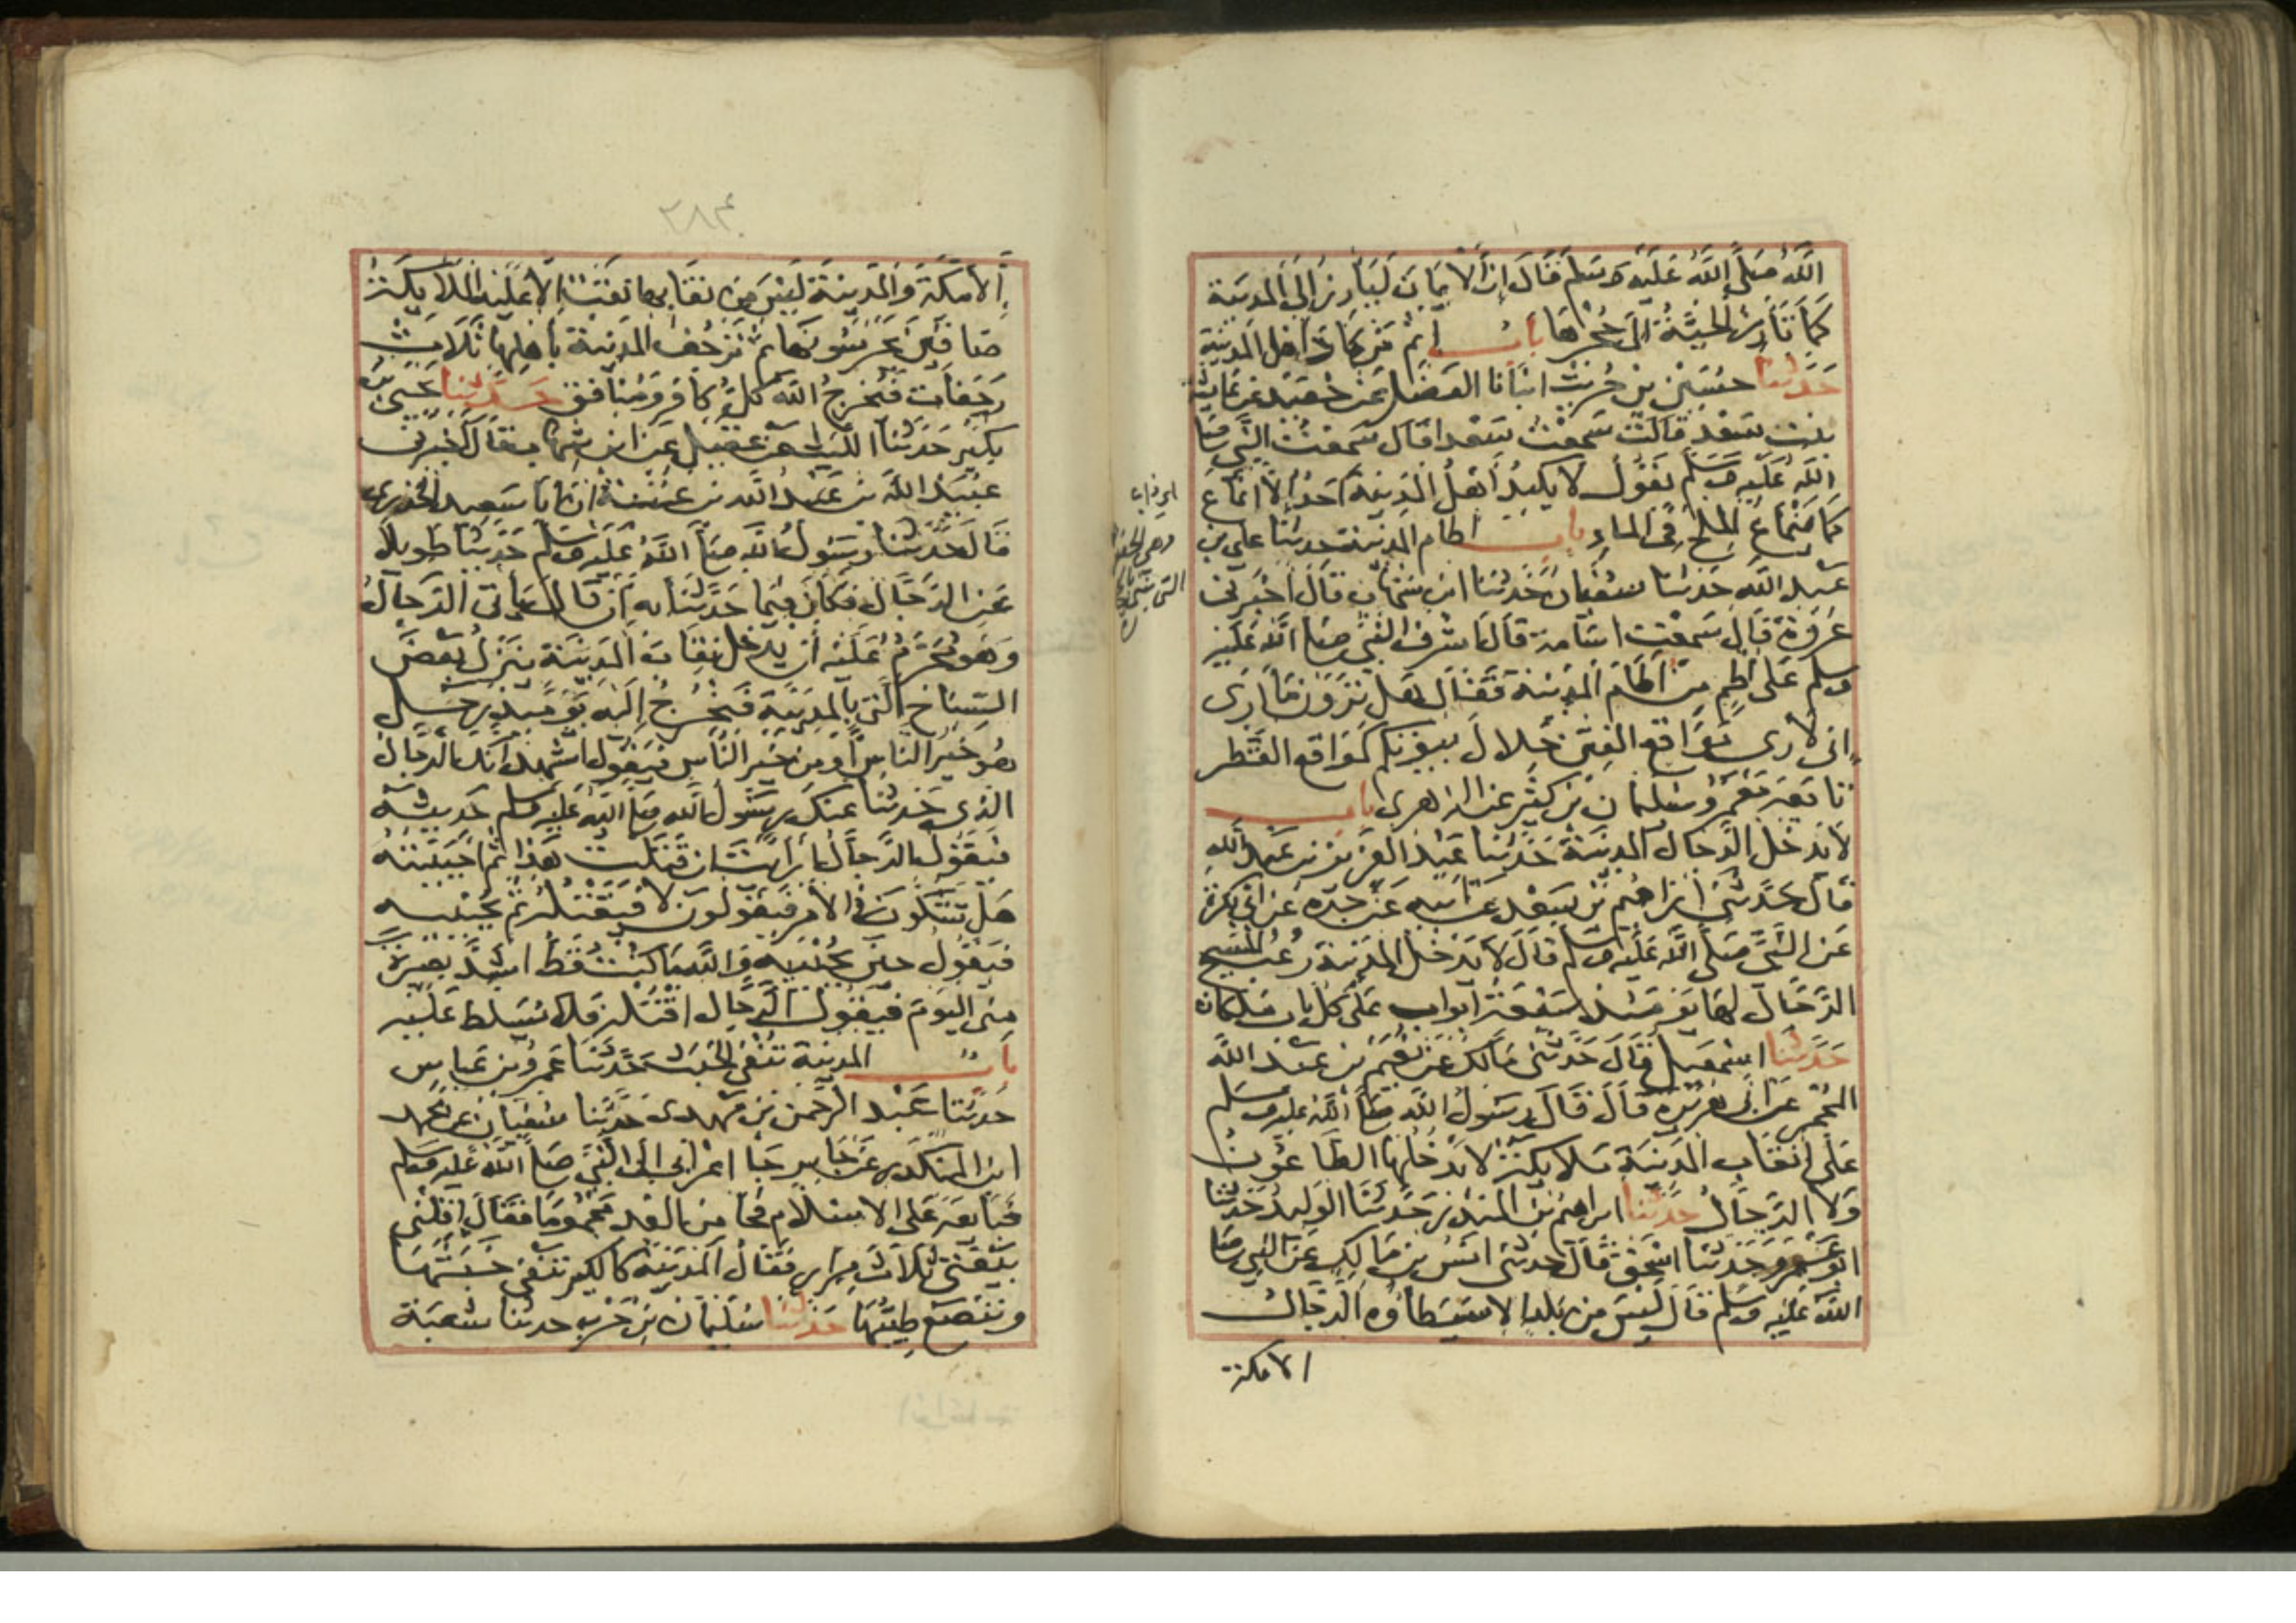 الله صلى الله عليه وسلم قال إن الايمان ليأرز إلى المدينة
كما تأرز الحية إلى جحرها باب إثم من كاد أهل المدينة
حدثنا حسين بن حريث انبأنا الفضل عن جعيد عن عائشة
بنت سعد قالت سمعت سعدا قال سمعت النبي صلى
الله عليه وسلم يقول لا يكيد أهل المدينة أحد إلا انماع
كما ينماع الملح في الماء باب اطام المدينة حدثنا علي بن
عبد الله حدثنا سفيان حدثنا ابن شهاب قال أخبرني
عروة قال سمعت اسامة قال اشرف النبي صلى الله عليه
وسلم على أطم من اطام المدينة فقال هل ترون ما أرى
اني لأرى مواقع الفتن خلال بيوتكم كمواقع القطر
تابعه معمر وسليمان بن كثير عن الزهري باب
لا يدخل الدجال المدينة حدثنا عبد العزيز بن عبد الله
قال حدثني إبراهيم بن سعد عن أبيه عن جده عن أبي بكرة
عن النبي صلى الله عليه وسلم قال لا يدخل المدينة رعب المسيح
الدجال لها يومئذ سبعة أبواب على كل باب ملكان
حدثنا اسمعيل قال حدثني مالك عن نعيم بن عبد الله
المجمر عن أبي هريرة قال قال رسول الله صلى الله عليه وسلم
على انقاب المدينة ملايكة لا يدخلها الطاعون
ولا الدجال حدثنا ابراهيم بن المنذر حدثنا الوليد حدثنا
ابو عمرو حدثنا اسحق قال حدثني انس بن مالك عن النبي صلى
الله عليه وسلم قال ليس من بلد الا سيطأوه الدجال
الا مكة
وهي الحصون
التي
٢٨٣
إلا مكة والمدينة ليس من نقابها نقب إلا عليه الملايكة
صافين يحرسونها ثم ترجف المدينة باهلها ثلاث
رجفات فيخرج الله كل كافر ومنافق حدثنا يحيى بن
بكير حدثنا الليث عن عقيل عن ابن شهاب قال أخبرني
عبيد الله بن عبد الله بن عتبة ان أبا سعيد الخدري
قال حدثنا رسول الله صلى الله عليه وسلم حديثا طويلا
عن الدجال فكان فيما حدثنا به أن قال يأتي الدجال
وهو محرم عليه أن يدخل نقاب المدينة ينزل بعض
السباخ التي بالمدينة فيخرج إليه يومئذ رجل
هو خير الناس أو من خير الناس فيقول اشهد أنك الدجال
الذي حدثنا عنك رسول الله صلى الله عليه وسلم حديثه
فيقول الدجال أرأيت ان قتلت هذا ثم أحييته
هل تشكون في الأمر فيقولون لا فيقتله ثم يحييه
فيقول حين يحييه والله ما كنت قط اشد بصيرة
مني اليوم فيقول الدجال اقتله فلا يسلط عليه
باب المدينة تنفي الخبث حدثنا عمرو بن عباس
حدثنا عبد الرحمن بن مهدى حدثنا سفيان عن محمد
ابن المنكدر عن جابر جا اعرابي الى النبي صلى الله عليه وسلم
فبايعه على الاسلام فجا من الغد محموما فقال اقلني
بيعتي ثلاث مرار فقال المدينة كالكير تنفي خبثها
وتنصع طيبها حدثنا سليمان بن حرب حدثنا شعبة